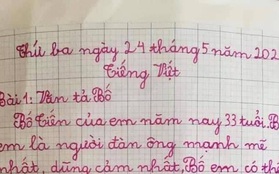 Thứ ba ngày 24 tháng 5 năm 202
Tiếng Việt
Bài 1: Văn tả Bố
Bố Tiến của em năm nay 33 tuổi. Bố
em là người đàn ông mạnh mẽ
nhất, dũng cảm nhất, Bố em có th